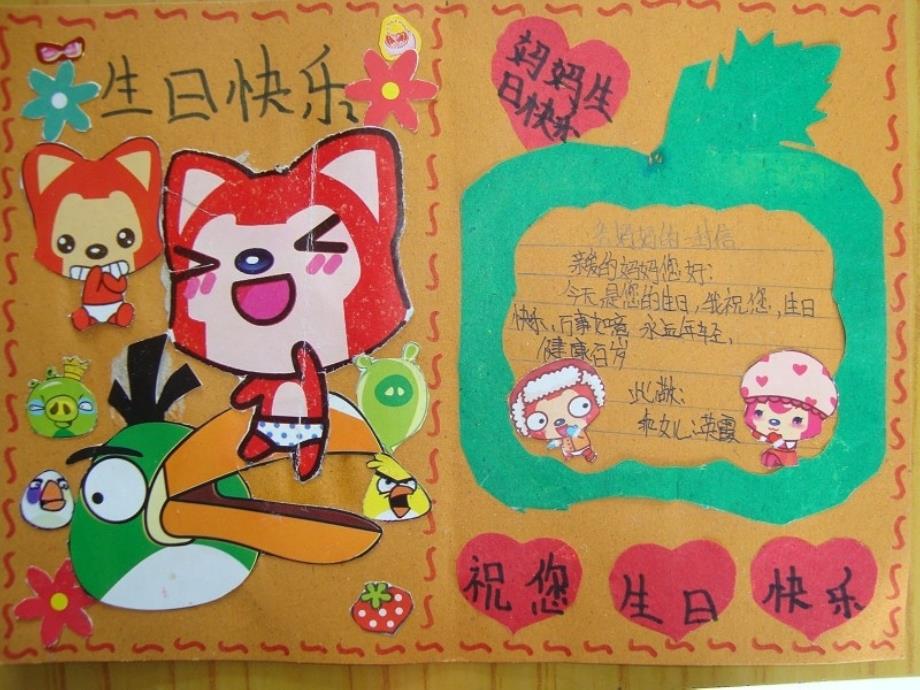 生日快乐
妈妈生
日快乐
给妈妈的一封信
亲爱的妈妈您好:
今天是您的生日,我祝您,生日
快乐、万事如意 永远年轻、
健康百岁
此敬:
女儿:英霞
祝您 生日 快乐